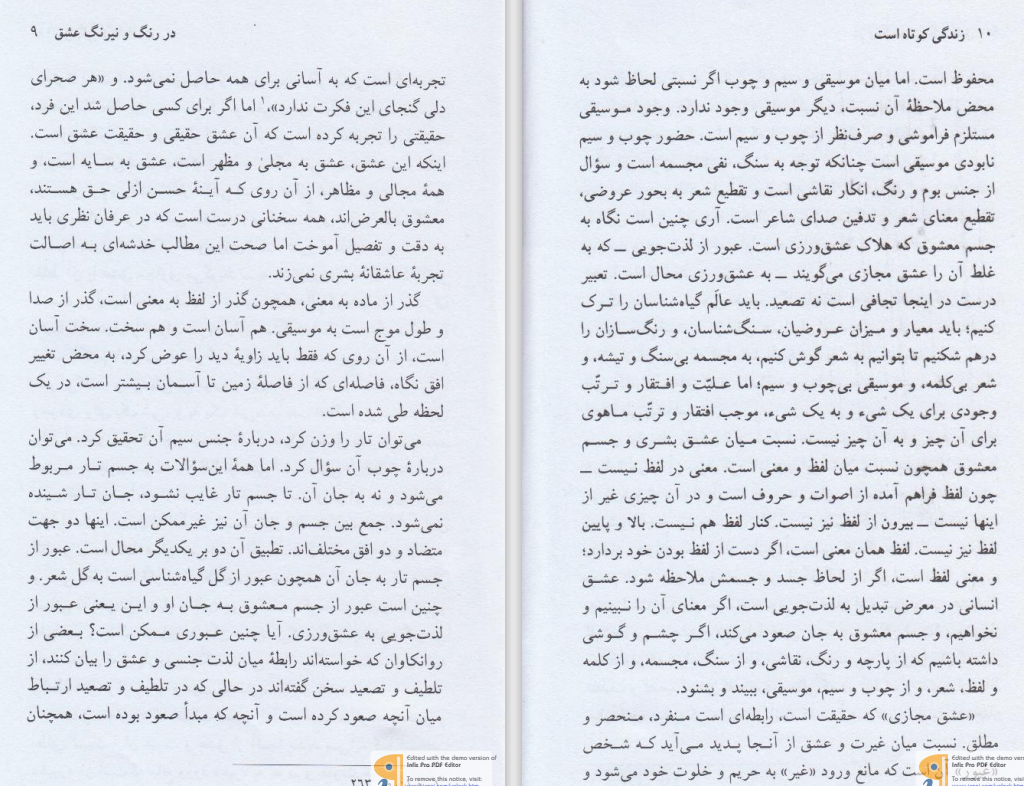 در رنگ و نیرنگ عشق ۹
تجربه‌ای است که به آسانی برای همه حاصل نمی‌شود. و «هر صحرای
دلی گنجای این فکرت ندارد»،۱ اما اگر برای کسی حاصل شد این فرد،
حقیقتی را تجربه کرده است که آن عشق حقیقی و حقیقت عشق است.
اینکه این عشق، عشق به مجلیٰ و مظهر است، عشق به سـایه است، و
همهٔ مجالی و مظاهر، از آن روی کـه آیـنهٔ حسـن ازلی حـق هسـتند،
معشوق بالعرض‌اند، همه سخنانی درست است که در عرفان نظری باید
به دقت و تفصیل آموخت اما صحت این مطالب خدشه‌ای بـه اصـالت
تجربهٔ عاشقانهٔ بشری نمی‌زند.
گذر از ماده به معنی، همچون گذر از لفظ به معنی است، گذر از صدا
و طول موج است به موسیقی. هم آسان است و هم سخت. سخت آسان
است، از آن روی که فقط باید زاویهٔ دید را عوض کرد، به محض تغییر
افق نگاه، فاصله‌ای که از فاصلهٔ زمین تا آسـمان بـیشتر است، در یک
لحظه طی شده است.
می‌توان تار را وزن کرد، دربارهٔ جنس سیم آن تحقیق کرد. می‌توان
دربارهٔ چوب آن سؤال کرد. اما همهٔ این‌سؤالات به جسم تـار مـربوط
می‌شود و نه به جان آن. تا جسم تار غایب نشـود، جـان تـار شـینده
نمی‌شود. جمع بین جسم و جان آن نیز غیرممکن است. اینها دو جهت
متضاد و دو افق مختلف‌اند. تطبیق آن دو بر یکدیگر محال است. عبور از
جسم تار به جان آن همچون عبور از گل گیاه‌شناسی است به گل شعر. و
چنین است عبور از جسم مـعشوق بـه جـان او و ایـن یـعنی عـبور از
لذت‌جویی به عشق‌ورزی. آیا چنین عـبوری مـمکن است؟ بـعضی از
روانکاوان که خواسته‌اند رابطهٔ میان لذت جنسی و عشق را بیان کنند، از
تلطیف و تصعید سخن گفته‌اند در حالی که در تلطیف و تصعید ارتـباط
میان آنچه صعود کرده است و آنچه که مبدأ صعود بوده است، همچنان
۲۶۳
۱۰ زندگی کوتاه است
محفوظ است. اما میان موسیقی و سیم و چوب اگر نسبتی لحاظ شود به
محض ملاحظهٔ آن نسبت، دیگر موسیقی وجود ندارد. وجود مـوسیقی
مستلزم فراموشی و صرف‌نظر از چوب و سیم است. حضور چوب و سیم
نابودی موسیقی است چنانکه توجه به سنگ، نفی مجسمه است و سؤال
از جنس بوم و رنگ، انکار نقاشی است و تقطیع شعر به بحور عروضی،
تقطیع معنای شعر و تدفین صدای شاعر است. آری چنین است نگاه به
جسم معشوق که هلاک عشق‌ورزی است. عبور از لذت‌جویی ــ که به
غلط آن را عشق مجازی می‌گویند ــ به عشق‌ورزی محال است. تعبیر
درست در اینجا تجافی است نه تصعید. باید عالَم گیاه‌شناسان را تـرک
کنیم؛ باید معیار و مـیزان عـروضیان، سـنگ‌شناسان، و رنگ‌سـازان را
درهم شکنیم تا بتوانیم به شعر گوش کنیم، به مجسمه بی‌سنگ و تیشه، و
شعر بی‌کلمه، و موسیقی بی‌چوب و سیم؛ اما عـلیّت و افـتقار و تـرتّب
وجودی برای یک شیء و به یک شیء، موجب افتقار و ترتّب مـاهوی
برای آن چیز و به آن چیز نیست. نسبت مـیان عشـق بشـری و جسـم
معشوق همچون نسبت میان لفظ و معنی است. معنی در لفظ نـیست ــ
چون لفظ فراهم آمده از اصوات و حروف است و در آن چیزی غیر از
اینها نیست ــ بیرون از لفظ نیز نیست. کنار لفظ هم نـیست. بالا و پایین
لفظ نیز نیست. لفظ همان معنی است، اگر دست از لفظ بودن خود بردارد؛
و معنی لفظ است، اگر از لحاظ جسد و جسمش ملاحظه شود. عشـق
انسانی در معرض تبدیل به لذت‌جویی است، اگر معنای آن را نـبینیم و
نخواهیم، و جسم معشوق به جان صعود می‌کند، اگـر چشـم و گـوشی
داشته باشیم که از پارچه و رنگ، نقاشی، و از سنگ، مجسمه، و از کلمه
و لفظ، شعر، و از چوب و سیم، موسیقی، ببیند و بشنود.
«عشق مجازی» که حقیقت است، رابطه‌ای است مـنفرد، مـنحصر و
مطلق. نسبت میان غیرت و عشق از آنـجا پـدید مـی‌آید کـه شـخص
«غیور» آن است که مانع ورود «غیر» به حریم و خلوت خود می‌شود و
Edited with the demo version of
Infix Pro PDF Editor
To remove this notice, visit:
Edited with the demo version of
Infix Pro PDF Editor
To remove this notice, visit: